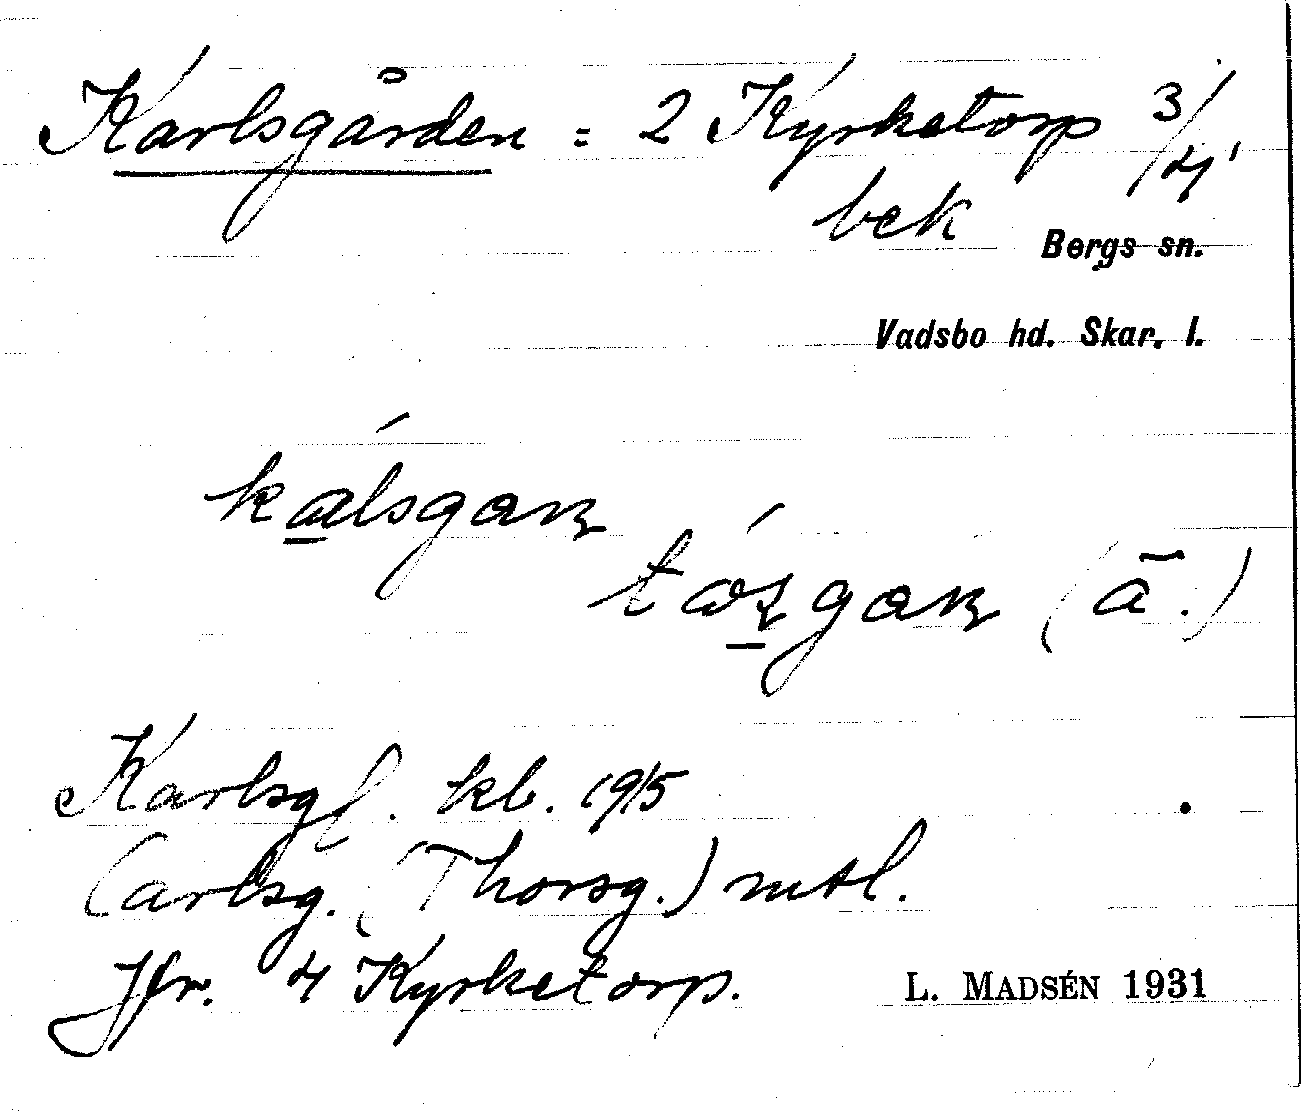 Karlsgården = 2 Kyrketorp 3/4'
bek
Bergs sn.
Vadsbo hd. Skar. l.
(ā.)
Karlsg f. kb. 1915
Carlsg. (Thorsg.) mtl.
Jfr. 4 Kyrketorp.
L. MADSÉN 1931